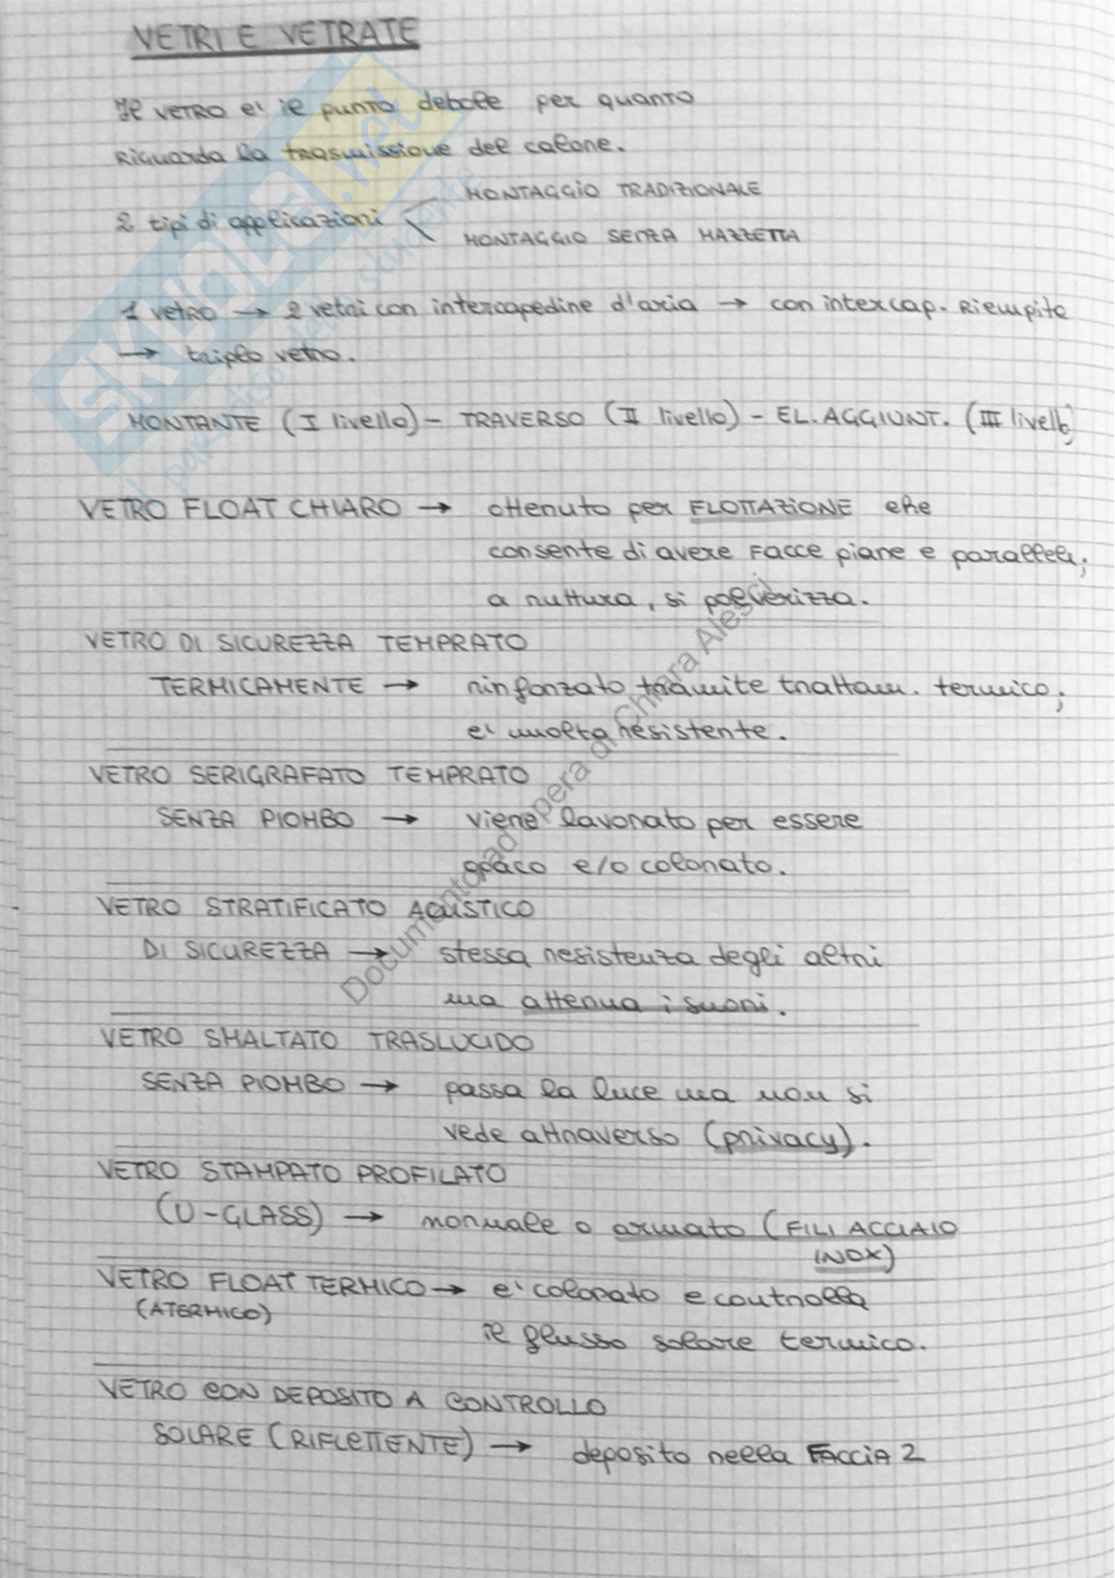 VETRI E VETRATE
Il VETRO e' il punto debole per quanto
Riguarda la trasmissione del calore.
MONTAGGIO TRADIZIONALE
2 tipi di applicazioni
MONTAGGIO SENZA MAZZETTA
1 vetro → 2 vetri con intercapedine d'aria → con intercap. Riempita
→ triplo vetro.
MONTANTE (I livello) - TRAVERSO (II livello) - EL. AGGIUNT. (III livello)
VETRO FLOAT CHIARO → ottenuto per FLOTTAZIONE che
consente di avere Facce piane e parallele;
a rottura, si polverizza.
VETRO DI SICUREZZA TEMPRATO
TERMICAMENTE → rinforzato tramite trattam. termico;
e' molto resistente.
VETRO SERIGRAFATO TEMPRATO
SENZA PIOMBO → viene lavorato per essere
opaco e/o colorato.
VETRO STRATIFICATO ACUSTICO
DI SICUREZZA → stessa resistenza degli altri
ma attenua i suoni.
VETRO SMALTATO TRASLUCIDO
SENZA PIOMBO → passa la luce ma non si
vede attraverso (privacy).
VETRO STAMPATO PROFILATO
(U-GLASS) → normale o armato (FILI ACCIAIO
INOX)
VETRO FLOAT TERMICO → e' colorato e controlla
(ATERMICO)
il flusso solare termico.
VETRO CON DEPOSITO A CONTROLLO
SOLARE (RIFLETTENTE) → deposito nella FACCIA 2
SKUOLA.net